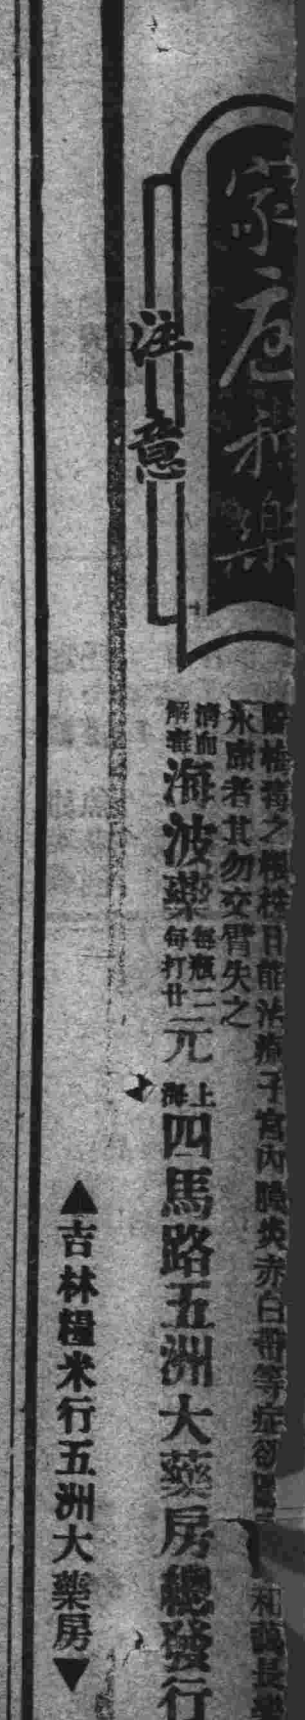 家庭和樂
注意
之根株日能治療子宮內膜炎赤白帶等症欲
永康者其勿交臂失之
清血解毒 海波藥 每瓶二元 每打廿元
上海四馬路五洲大藥房總發行
▲吉林糧米行五洲大藥房▼